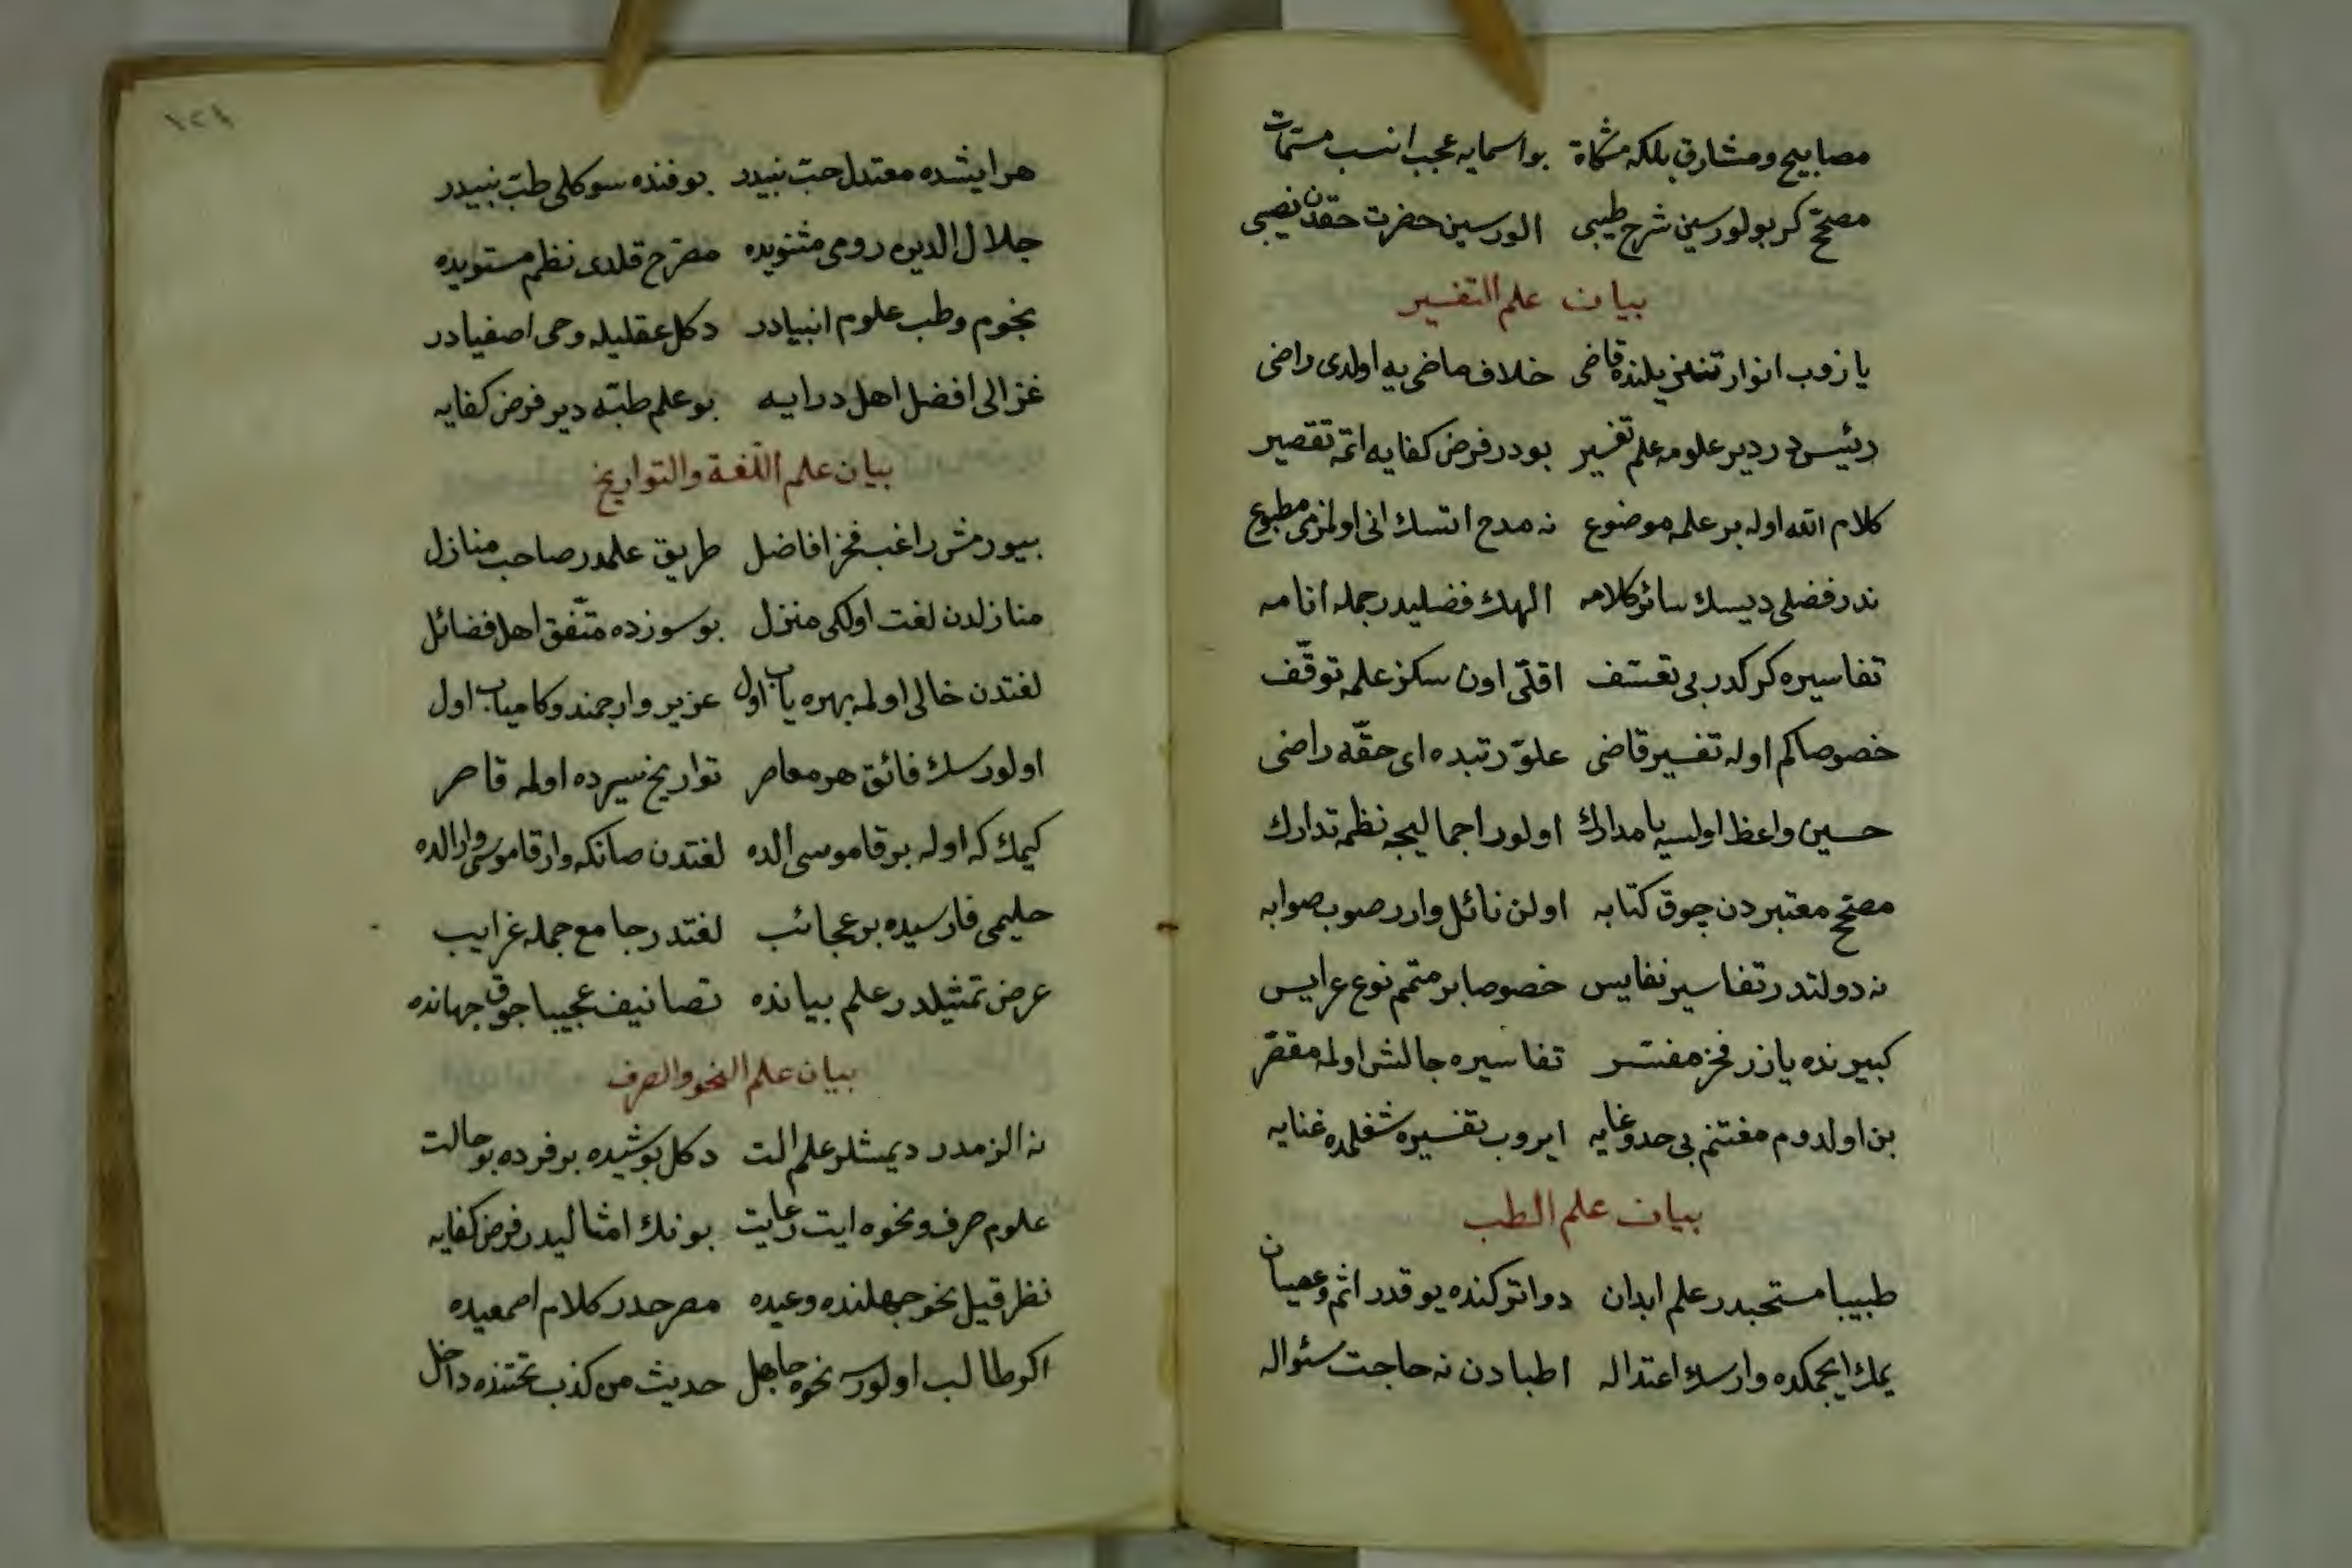 مصابيح ومشارق بلكه مشكاة بو اسمايه عجب انسب مسمات
مصحح كر بولورسين شرح طيبى الورسين حضرت حقدن نصيبى
بيان علم التفسير
يازوب انوار تنزيلنده قاضى خلاف ماضى يه اولدى راضى
رئيس در دير علومه علم تفسير بودر فرض كفايه اتمه تقصير
كلام الله اوله بر علمه موضوع نه مدح اتسك انى اولمزمى مطبوع
ندر فضلى ديسك سائر كلامه الهك فضليدر جمله انامه
تفاسيره كركدر بى تعسف اقلى اون سكز علمه توقف
خصوصا كم اوله تفسير قاضى علو رتبده اى حقه راضى
حسين واعظ اولسه يا مدارك اولور اجماليجه نظمه تدارك
مصحح معتبردن چوق كتابه اولن نائل وارر صوب صوابه
نه دولتدر تفاسير نفايس خصوصا بر متمم نوع عرايس
كبيرنده يازر فخر مفسر تفاسيره جالش اولمه مقصر
بن اولدوم مغتنم بى حد وغايه ايروب تفسيره شغلمده عنايه
بيان علم الطب
طبيبا مستحبدر علم ابدان دوا تركنده يوقدر اثم وعصيان
يمك ايچمكده وارسك اعتداله اطبادن نه حاجت سئواله
١٢٤
هر ايشده معتدل حب نبيدر بو فنده سوكلى طب نبيدر
جلال الدين رومى مثنويده مصرح قلدى نظم مستويده
نجوم وطب علوم انبيادر دكل عقليله وحى اصفيادر
غزالى افضل اهل درايه بو علم طبه دير فرض كفايه
بيان علم اللغة والتواريخ
بيورمش راغب فخر افاضل طريق علمدر صاحب منازل
منازلدن لغت اولكى منزل بو سوزده متفق اهل فضائل
لغتدن خالى اولمه بهره ياب اول عزيز وارجمند وكامياب اول
اولورسك فائق هر معاصر تواريخ سيرده اولمه قاصر
كيمك كه اوله بر قاموسى الده لغتدن صانكه وار قاموسى وار الده
حليمى فارسيده بر عجائب لغتدر جامع جمله غرايب
عرض تمثيلدر علم بيانده تصانيف عجيبا جوق جهانده
بيان علم النحو والصرف
نه الزمدر ديمشلر علم الت دكل پوشيده بر فرده بو حالت
علوم صرف ونحوه ايت رعايت بونك امثاليدر فرض كفايه
نظر قيل نحو جهلنده وعيده مصرحدر كلام اصمعيده
اكر طالب اولورسه نحوه جاهل حديث من كذب تحتنده داخل